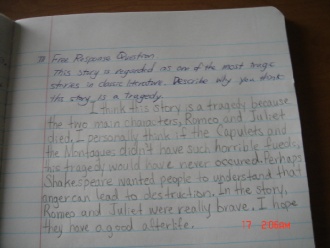 Free Response Question
This story is regarded as one of the most tragic
stories in classic literature. Describe why you think
this story is a tragedy.
I think this story is a tragedy because
the two main characters, Romeo and Juliet
died. I personally think if the Capulets and
the Montagues didn't have such horrible fueds,
tragedy would have never occured. Perhaps
Shakespeare wanted people to understand that
anger can lead to destruction. In the story,
Romeo and Juliet were really brave. I hope
they have a good afterlife.